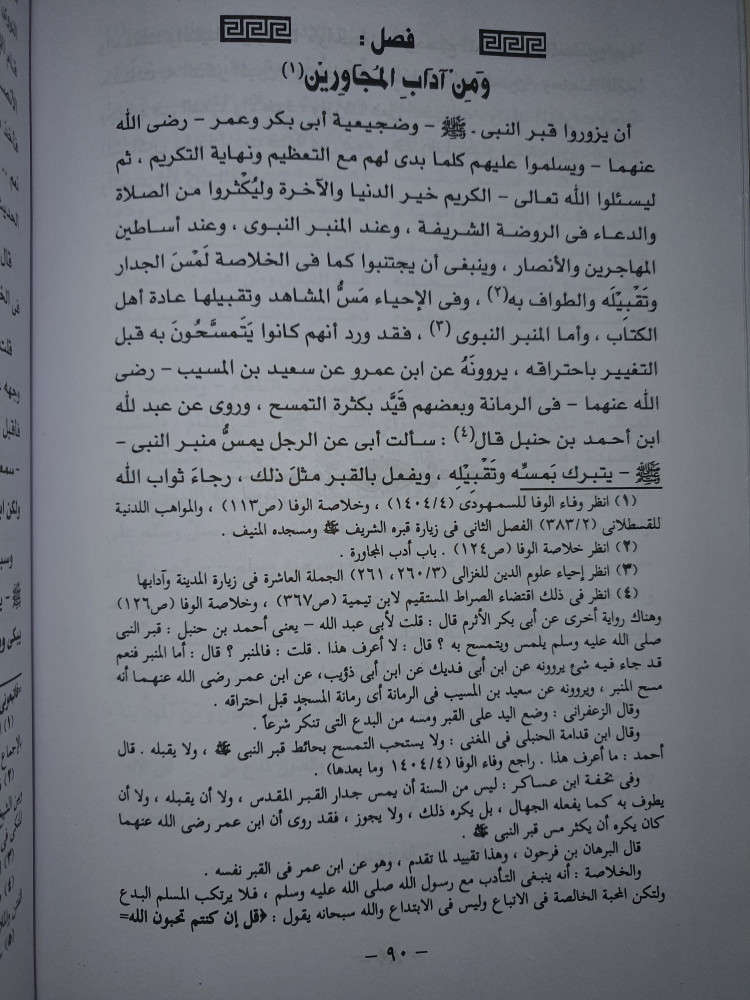 فصل :
وَمِنْ آدَابِ المُجَاوِرِيْن(١)
أن يزوروا قبر النبى . ﷺ - وضجيعية أبى بكر وعمر - رضى الله
عنهما - ويسلموا عليهم كلما بدى لهم مع التعظيم ونهاية التكريم ، ثم
ليسئلوا الله تعالى - الكريم خير الدنيا والآخرة وليُكْثروا من الصلاة
والدعاء فى الروضة الشريفة ، وعند المنبر النبوى ، وعند أساطين
المهاجرين والأنصار ، وينبغى أن يجتنبوا كما فى الخلاصة لَمْسَ الجدار
وتَقْبِيْلَه والطواف به(٢) ، وفى الإحياء مَسُّ المشاهد وتقبيلها عادة أهل
الكتاب ، وأما المنبر النبوى (٣) ، فقد ورد أنهم كانوا يَتَمسَّحُونَ به قبل
التغيير باحتراقه ، يروونَهُ عن ابن عمرو عن سعيد بن المسيب - رضى
الله عنهما - فى الرمانة وبعضهم قَيَّد بكثرة التمسح ، وروى عن عبد لله
ابن أحمد بن حنبل قال(٤) : سألت أبى عن الرجل يمسُّ منبر النبى -
ﷺ - يتبرك بَمسِّه وتَقْبِيْلِه ، ويفعل بالقبر مثلَ ذلك ، رجاءَ ثواب الله
(١) انظر وفاء الوفا للسمهودى (١٤٠٤/٤) ، وخلاصة الوفا (ص١١٣) ، والمواهب اللدنية
للقسطلانى (٣٨٣/٢) الفصل الثانى فى زيارة قبره الشريف ﷺ ومسجده المنيف .
(٢) انظر خلاصة الوفا (ص١٢٤) . باب أدب المجاورة .
(٣) انظر إحياء علوم الدين للغزالى (٢٦٠/٣، ٢٦١) الجملة العاشرة فى زيارة المدينة وآدابها
(٤) انظر فى ذلك اقتضاء الصراط المستقيم لابن تيمية (ص٣٦٧) ، وخلاصة الوفا (ص١٢٦)
وهناك رواية أخرى عن أبى بكر الأثرم قال : قلت لأبى عبد الله - يعنى أحمد بن حنبل : قبر النبى
صلى الله عليه وسلم يلمس ويتمسح به ؟ قال : لا أعرف هذا . قلت : فالمنبر ؟ قال : أما المنبر فنعم
قد جاء فيه شئ يروونه عن ابن أبى فديك عن ابن أبى ذؤيب، عن ابن عمر رضى الله عنهما أنه
مسح المنبر ، ويروونه عن سعيد بن المسيب فى الرمانة أى رمانة المسجد قبل احتراقه .
وقال الزعفرانى : وضع اليد على القبر ومسه من البدع التى تنكر شرعاً .
وقال ابن قدامة الحنبلى فى المغنى : ولا يستحب التمسح بحائط قبر النبى ﷺ ، ولا يقبله . قال
أحمد : ما أعرف هذا . راجع وفاء الوفا (١٤٠٤/٤ وما بعدها) .
وفى تحفة ابن عساكر : ليس من السنة أن يمس جدار القبر المقدس ، ولا أن يقبله ، ولا أن
يطوف به كما يفعله الجهال ، بل يكره ذلك ، ولا يجوز ، فقد روى أن ابن عمر رضى الله عنهما
كان يكره أن يكثر مس قبر النبى ﷺ .
قال البرهان بن فرحون ، وهذا تقييد لما تقدم ، وهو عن ابن عمر فى القبر نفسه .
والخلاصة : أنه ينبغى التأدب مع رسول الله صلى الله عليه وسلم ، فلا يرتكب المسلم البدع
ولتكن المحبة الخالصة فى الاتباع وليس فى الابتداع والله سبحانه يقول : ﴿قل إن كنتم تحبون الله=
- ٩٠ -